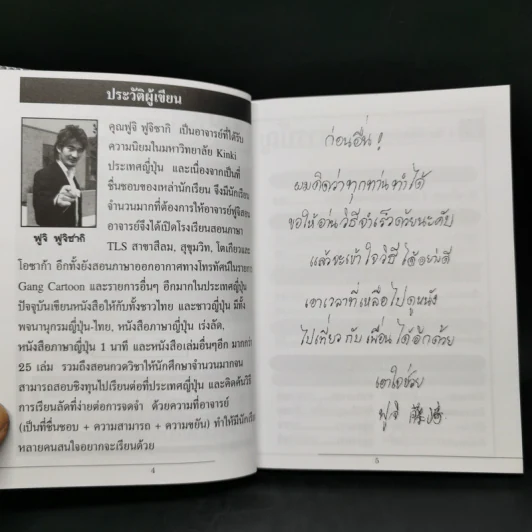 ประวัติผู้เขียน
คุณฟูจิ ฟูจิซากิ เป็นอาจารย์ที่ได้รับ
ความนิยมในมหาวิทยาลัย Kinki
ประเทศญี่ปุ่น และเนื่องจากเป็นที่
ชื่นชอบของเหล่านักเรียน จึงมีนักเรียน
จำนวนมากที่ต้องการให้อาจารย์ฟูจิสอน
อาจารย์จึงได้เปิดโรงเรียนสอนภาษา
TLS สาขาสีลม, สุขุมวิท, โตเกียวและ
ฟูจิ ฟูจิซากิ
โอซาก้า อีกทั้งยังสอนภาษาออกอากาศทางโทรทัศน์ในรายการ
Gang Cartoon และรายการอื่นๆ อีกมากในประเทศญี่ปุ่น
ปัจจุบันเขียนหนังสือให้กับทั้งชาวไทย และชาวญี่ปุ่น มีทั้ง
พจนานุกรมญี่ปุ่น-ไทย, หนังสือภาษาญี่ปุ่น เร่งลัด,
หนังสือภาษาญี่ปุ่น 1 นาที และหนังสือเล่มอื่นๆอีก มากกว่า
25 เล่ม รวมถึงสอนกวดวิชาให้นักศึกษาจำนวนมากจน
สามารถสอบชิงทุนไปเรียนต่อที่ประเทศญี่ปุ่น และคิดค้นวิธี
การเรียนลัดที่ง่ายต่อการจดจำ ด้วยความที่อาจารย์
(เป็นที่ชื่นชอบ + ความสามารถ + ความขยัน) ทำให้มีนักเรียน
หลายคนสนใจอยากจะเรียนด้วย
4
ก่อนอื่น!
ผมคิดว่าทุกท่านทำได้
ขอให้อ่านวิธีจำเร็วด้วยนะคับ
แล้วจะเข้าใจวิธีได้อย่างดี
เอาเวลาที่เหลือไปดูหนัง
ไปเที่ยวกับเพื่อนได้อีกด้วย
เอาใจช่วย
ฟูจิ
5